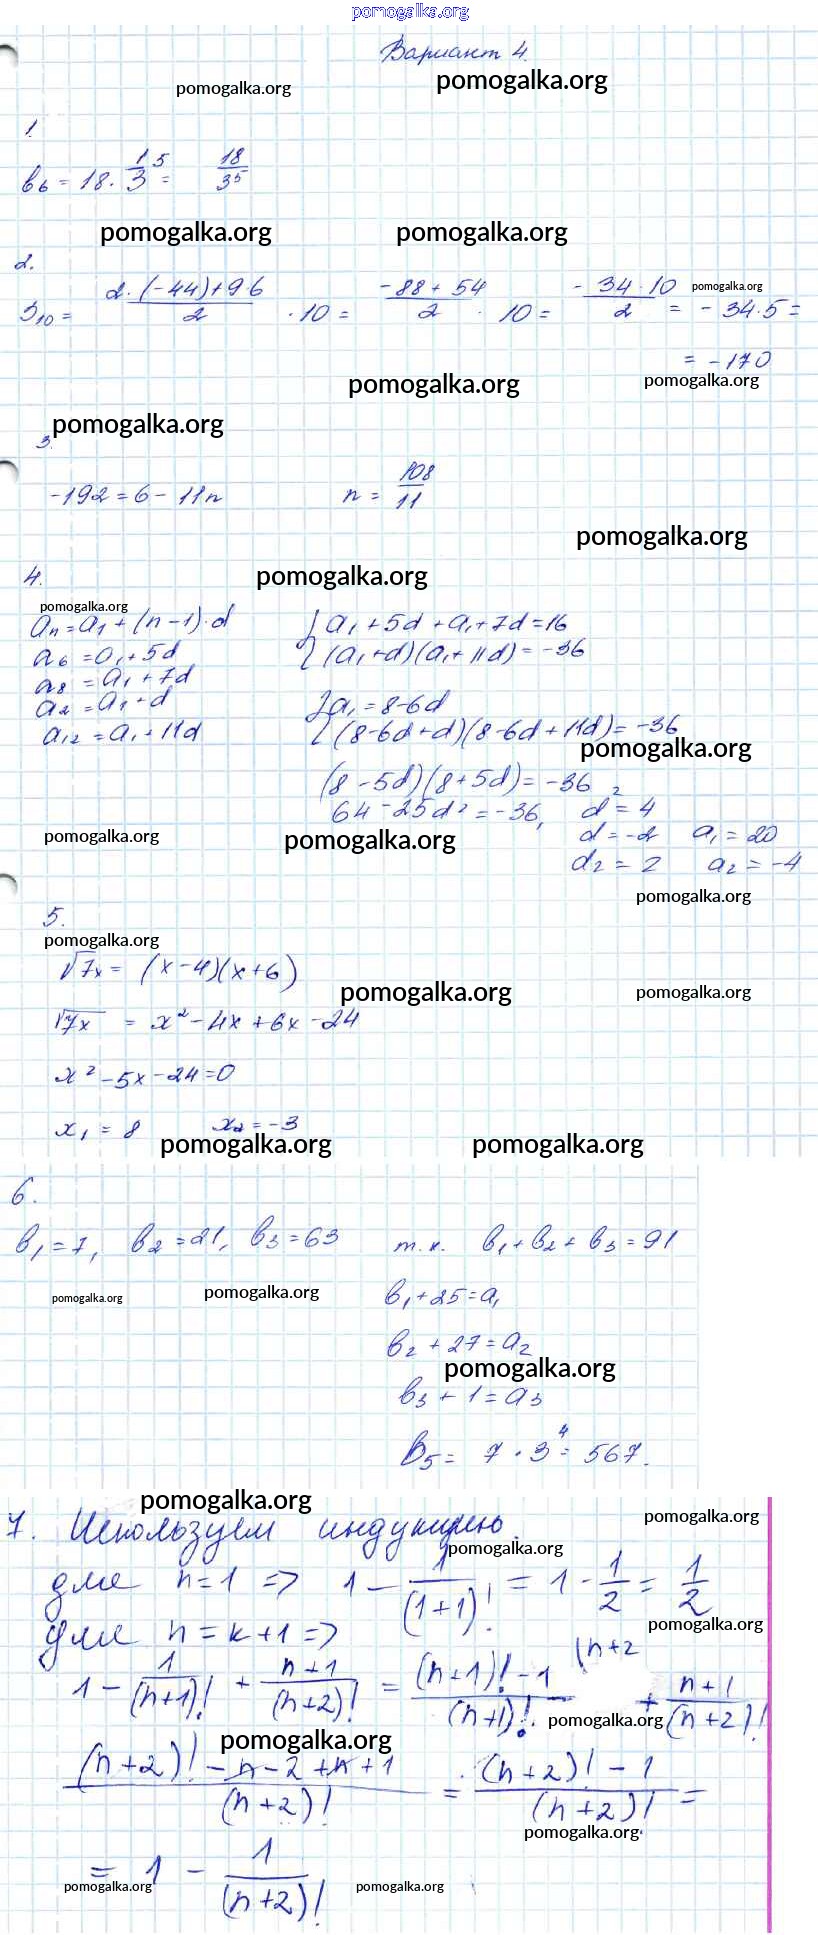 pomogalka.org
Вариант 4.
pomogalka.org pomogalka.org
1.
b₆ = 18 · 1/3⁵ = 18/3⁵
pomogalka.org pomogalka.org
2.
S₁₀ = (2·(-44)+9·6)/2 · 10 = (-88+54)/2 · 10 = (-34·10)/2 = -34·5 =
pomogalka.org
= -170
pomogalka.org pomogalka.org
pomogalka.org
3.
-192 = 6 - 11n n = 108/11
pomogalka.org
4. pomogalka.org
pomogalka.org
aₙ = a₁ + (n-1)·d { a₁ + 5d + a₁ + 7d = 16
a₆ = a₁ + 5d (a₁+d)(a₁+11d) = -36
a₈ = a₁ + 7d
a₂ = a₁ + d { a₁ = 8-6d
a₁₂ = a₁ + 11d (8-6d+d)(8-6d+11d) = -36
pomogalka.org
(8-5d)(8+5d) = -36
64 - 25d² = -36, d² = 4
pomogalka.org pomogalka.org d = -2 a₁ = 20
d₂ = 2 a₂ = -4
pomogalka.org
5.
pomogalka.org
√7x = (x-4)(x+6)
pomogalka.org pomogalka.org
√7x = x² - 4x + 6x - 24
x² - 5x - 24 = 0
x₁ = 8 x₂ = -3
pomogalka.org pomogalka.org
6.
b₁ = 7, b₂ = 21, b₃ = 63 т.к. b₁ + b₂ + b₃ = 91
pomogalka.org pomogalka.org b₁ + 25 = a₁
b₂ + 27 = a₂
pomogalka.org
b₃ + 1 = a₃
B₅ = 7 · 3⁴ = 567.
pomogalka.org pomogalka.org
7. Используем индукцию.
pomogalka.org
для n=1 => 1 - 1/(1+1)! = 1 - 1/2 = 1/2
pomogalka.org
для n=k+1 =>
1 - 1/(n+1)! + (n+1)/(n+2)! = ((n+1)! - 1)/(n+1)! (n+2 + (n+1)/(n+2)!
pomogalka.org
pomogalka.org
((n+2)! - n - 2 + n + 1)/(n+2)! = ((n+2)! - 1)/(n+2)! =
pomogalka.org
= 1 - 1/(n+2)!
pomogalka.org pomogalka.org